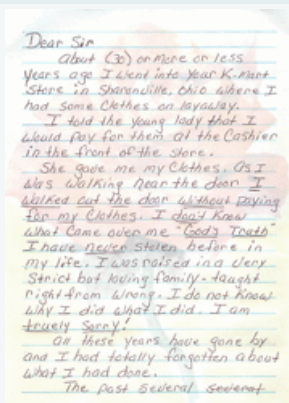 Dear Sir
about (30) or more or less
years ago I went into your K.mart
Store in Sharonville, Ohio where I
had some Clothes on layaway.
I told the young lady that I
would pay for them at the Cashier
in the front of the store.
She gave me my Clothes. as I
was walking near the door I
walked out the door without paying
for my Clothes. I don't know
what came over me "God's Truth"
I have never stolen before in
my life. I was raised in a very
strict but loving family-taught
right from wrong. I do not know
why I did what I did. I am
truely sorry!
all these years have gone by
and I had totally forgotten about
what I had done.
The past several several